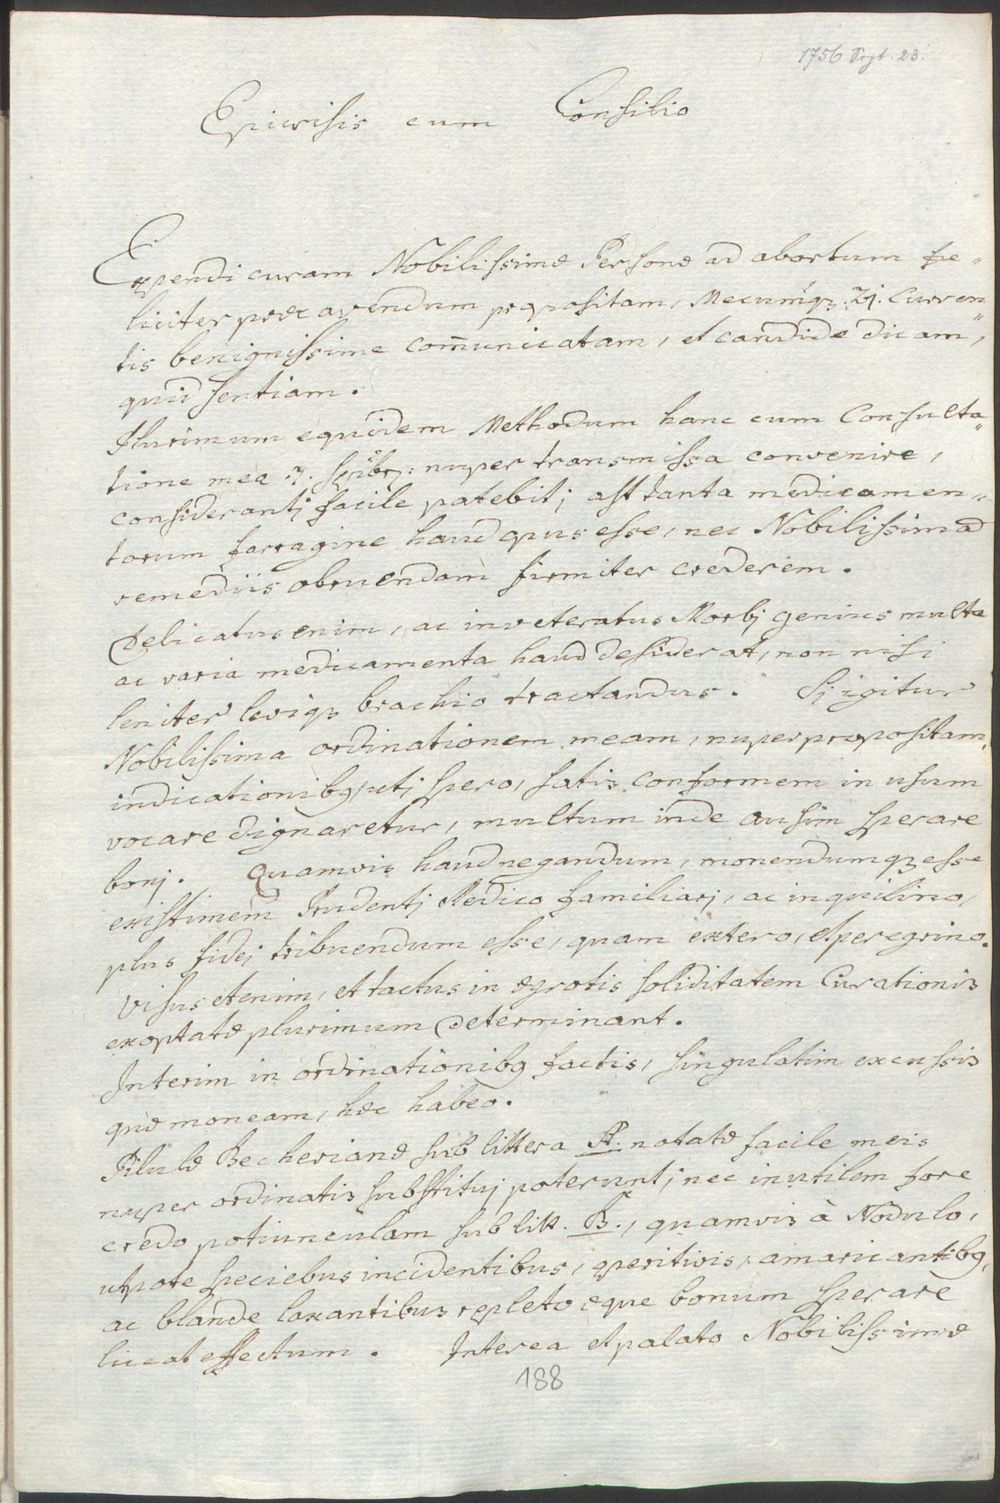 1756 Sept. 23.
Epicrisis cum Consilio
Expendi curam Nobilissimæ Personæ ad abortum fe„
liciter præcavendum propositam, Mecumqꝫ 21. Curren„
tis benignissime com̄unicatam, et candide dicam,
quid sentiam.
Plurimum equidem Methodum hanc cum Consulta„
tione mea 7. Sptbr: nuper transmissa convenire,
considerantj facile patebit; ast tanta medicamen„
torum farragine haud opus esse, nec Nobilissimam
remediis obruendam firmiter crederem.
Delicatus enim, ac inveteratus Morbj genius multa
ac varia medicamenta haud desiderat, non nisi
leniter leviqꝫ brachio tractandus. Sj igitur
Nobilissima ordinationem meam, nuper propositam,
indicationibꝫ, utj spero, satis conformem in usum
vocare dignaretur, multum inde ausim sperare
bonj. Quamvis haud negandum, monendumqꝫ esse
existimem Prudentj Medico familiarj, ac inquilino,
plus fidej tribuendum esse, quam extero, et peregrino.
Visus etenim, et tactus in ægrotis soliditatem Curationis
exoptatæ plurimum determinant.
Interim in ordinationibꝫ factis, singulatim excussis
quæ moneam, hæc habeo.
Pilulæ Becherianæ sub littera A. notatæ facile meis
nuper ordinatis substituj poterunt; nec inutilem fore
credo potiunculam sub litt. B., quamvis à Nodulo,
utpote speciebus incidentibus, aperitivis, amaricantibꝫ,
ac blande laxantibus repleto æque bonum sperare
liceat effectum. Interea et palato Nobilissimæ
188